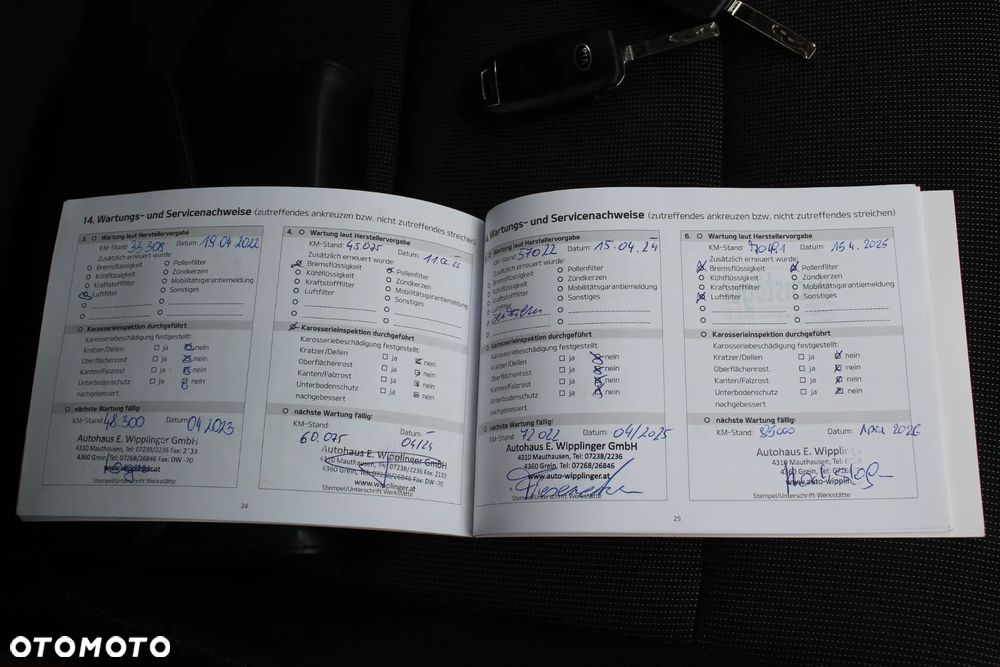 14. Wartungs- und Servicenachweise (zutreffendes ankreuzen bzw. nicht zutreffendes streichen)
3. Wartung laut Herstellervorgabe
KM-Stand: 33 308 Datum: 19.04.2022
Zusätzlich erneuert wurde:
Bremsflüssigkeit Pollenfilter
Kühlflüssigkeit Zündkerzen
Kraftstofffilter Mobilitätsgarantiemeldung
Luftfilter Sonstiges
Karosserieinspektion durchgeführt
Karosseriebeschädigung festgestellt:
Kratzer/Dellen ja nein
Oberflächenrost ja nein
Kanten/Falzrost ja nein
Unterbodenschutz ja nein
nachgebessert
nächste Wartung fällig:
KM-Stand: 48.300 Datum: 04 2023
Autohaus E. Wipplinger GmbH
4310 Mauthausen, Tel: 07238/2236 Fax:
4360 Grein, Tel: 07268/26846 Fax: DW -70
Stempel/Unterschrift Werkstätte
24
4. Wartung laut Herstellervorgabe
KM-Stand: 45 075 Datum:
Zusätzlich erneuert wurde:
Bremsflüssigkeit Pollenfilter
Kühlflüssigkeit Zündkerzen
Kraftstofffilter Mobilitätsgarantiemeldung
Luftfilter Sonstiges
Karosserieinspektion durchgeführt
Karosseriebeschädigung festgestellt:
Kratzer/Dellen
Oberflächenrost ja nein
Kanten/Falzrost ja nein
Unterbodenschutz ja nein
nachgebessert ja nein
nächste Wartung fällig:
KM-Stand: Datum:
60.075 04/24
Autohaus E. Wipplinger GmbH
4310 Mauthausen, Tel: 07238/2236 Fax:
4360 Grein, 07268/26846 Fax: DW -70
www.wipplinger.at
Stempel/Unterschrift Werkstätte
Wartungs- und Servicenachweise (zutreffendes ankreuzen bzw. nicht zutreffendes streichen)
Wartung laut Herstellervorgabe
KM-Stand: 57022 Datum: 15.04.24
Zusätzlich erneuert wurde:
Bremsflüssigkeit Pollenfilter
Kühlflüssigkeit Zündkerzen
Kraftstofffilter Mobilitätsgarantiemeldung
Luftfilter Sonstiges
Karosserieinspektion durchgeführt
Karosseriebeschädigung festgestellt:
Kratzer/Dellen ja nein
Oberflächenrost ja nein
Kanten/Falzrost ja nein
Unterbodenschutz ja nein
nachgebessert
nächste Wartung fällig:
KM-Stand: 72022 Datum: 04/2025
Autohaus E. Wipplinger GmbH
4310 Mauthausen, Tel: 07238/2236
4360 Grein, Tel: 07268/26846
www.auto-wipplinger.at
Stempel/Unterschrift Werkstätte
25
6. Wartung laut Herstellervorgabe
KM-Stand: Datum: 15.4.2025
Zusätzlich erneuert wurde:
Bremsflüssigkeit Pollenfilter
Kühlflüssigkeit Zündkerzen
Kraftstofffilter Mobilitätsgarantiemeldung
Luftfilter Sonstiges
Karosserieinspektion durchgeführt
Karosseriebeschädigung festgestellt:
Kratzer/Dellen ja nein
Oberflächenrost ja nein
Kanten/Falzrost ja nein
Unterbodenschutz ja nein
nachgebessert
nächste Wartung fällig:
KM-Stand: 85000 Datum: April 2026
Autohaus E.
4310 Mauthausen, Tel:
4360 Grein, Tel:
Stempel/Unterschrift Werkstätte
KIA
OTOMOTO